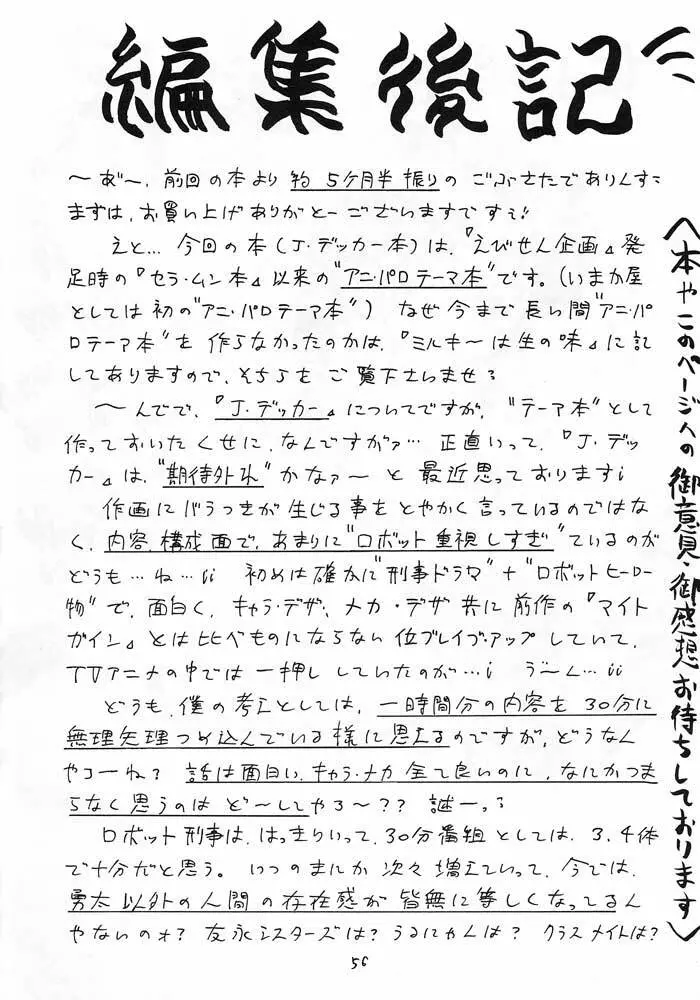 編集後記
〜あ゛〜、前回の本より約5ケ月半振りのごぶさたでありんす
まずは、お買い上げありがとーございますですぅ
えと…今回の本(J・デッカー本)は、『えびせん企画』発
足時の『セラ・ムン本』以来の"アニ・パロテーマ本"です。(いまか屋
としては初の"アニ・パロテーマ本") なぜ今まで長い間"アニ・パ
ロテーマ本"を作らなかったのかは、『ミルキ〜は生の味』に記
してありますので、そちらをご覧下さいませ
〜んでで、『J・デッカー』についてですが、"テーマ本"として
作っておいたくせに、なんですがァ…正直いって、『J・デッ
カー』は、"期待外れ"かなァ〜と最近思っております
作画にバラつきが生じる事をとやかく言っているのではな
く、内容、構成面で、あまりに"ロボット重視しすぎ"ているのが
どうも…ね… 初めは確かに"刑事ドラマ"+"ロボットヒーロー
物"で、面白く、キャラ・デザ、メカ・デザ共に前作の『マイト
ガイン』とは比べものにならない位ブレイブ・アップしていて、
TVアニメの中では一押ししていたのが… う゛〜ん…
どうも、僕の考えとしては、一時間分の内容を30分に
無理矢理つめ込んでいる様に思えるのですが、どうなん
やろーね? 話は面白い、キャラ・メカ全て良いのに、なにかつま
らなく思うのはど〜してやろ〜?? 謎ーっ
ロボット刑事は、はっきりいって、30分番組としては、3、4体
で十分だと思う。いつのまにか次々増えていって、今では、
勇太以外の人間の存在感が皆無に等しくなってるん
やないのォ? 友永シスターズは? うるにゃんは? クラスメイトは?
56
〈本やこのページへの御意見・御感想お待ちしております〉